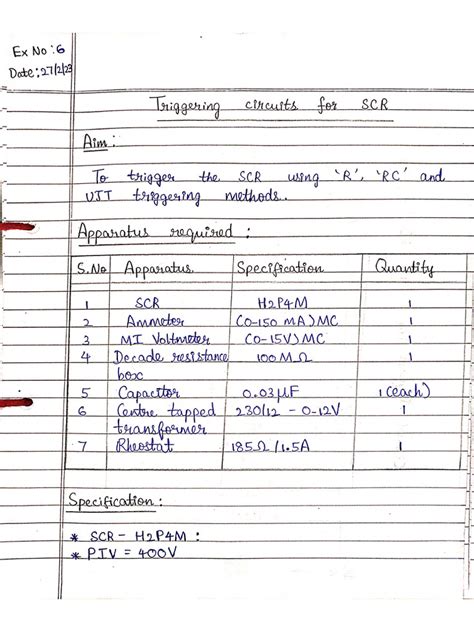 Ex No : 6
Date : 27/2/23
Triggering circuits for SCR
Aim :
To trigger the SCR using 'R', 'RC' and
UJT triggering methods.
Apparatus required :
S.No Apparatus. Specification Quantity
1 SCR H2P4M 1
2 Ammeter (0-150 mA) MC 1
3 MI Voltmeter (0-15V) MC 1
4 Decade resistance 100 MΩ 1
box
5 Capacitor 0.03μF 1 (each)
6 Centre tapped 230/12 - 0-12V 1
transformer
7 Rheostat 185Ω / 1.5A 1
Specification :
* SCR - H2P4M :
* PIV = 400V